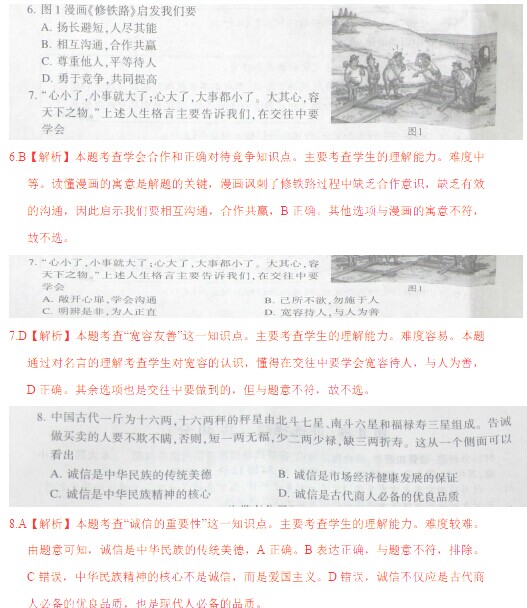 6. 图1漫画《修铁路》启发我们要
A. 扬长避短,人尽其能
B. 相互沟通,合作共赢
C. 尊重他人,平等待人
D. 勇于竞争,共同提高
7. “心小了,小事就大了;心大了,大事都小了。大其心,容
天下之物。”上述人生格言主要告诉我们,在交往中要
学会
图1
6.B【解析】本题考查学会合作和正确对待竞争知识点。主要考查学生的理解能力。难度中
等。读懂漫画的寓意是解题的关键，漫画讽刺了修铁路过程中缺乏合作意识，缺乏有效
的沟通，因此启示我们要相互沟通，合作共赢，B 正确。其他选项与漫画的寓意不符，
故不选。
7. “心小了,小事就大了;心大了,大事都小了。大其心,容
天下之物。”上述人生格言主要告诉我们,在交往中要
学会
图1
A. 敞开心扉,学会沟通 B. 己所不欲,勿施于人
C. 明辨是非,为人正直 D. 宽容待人,与人为善
7.D【解析】本题考查“宽容友善”这一知识点。主要考查学生的理解能力。难度容易。本题
通过对名言的理解考查学生对宽容的认识，懂得在交往中要学会宽容待人，与人为善，
D 正确。其余选项也是交往中要做到的，但与题意不符，故不选。
8. 中国古代一斤为十六两,十六两秤的秤星由北斗七星、南斗六星和福禄寿三星组成。告诫
做买卖的人要不欺不瞒,否则,短一两无福,少二两少禄,缺三两折寿。这从一个侧面可以
看出
A. 诚信是中华民族的传统美德 B. 诚信是市场经济健康发展的保证
C. 诚信是中华民族精神的核心 D. 诚信是古代商人必备的优良品质
8.A【解析】本题考查“诚信的重要性”这一知识点。主要考查学生的理解能力。难度较难。
由题意可知，诚信是中华民族的传统美德，A 正确。B 表达正确，与题意不符，排除。
C 错误，中华民族精神的核心不是诚信，而是爱国主义。D 错误，诚信不仅应是古代商
人必备的优良品质，也是现代人必备的品质。